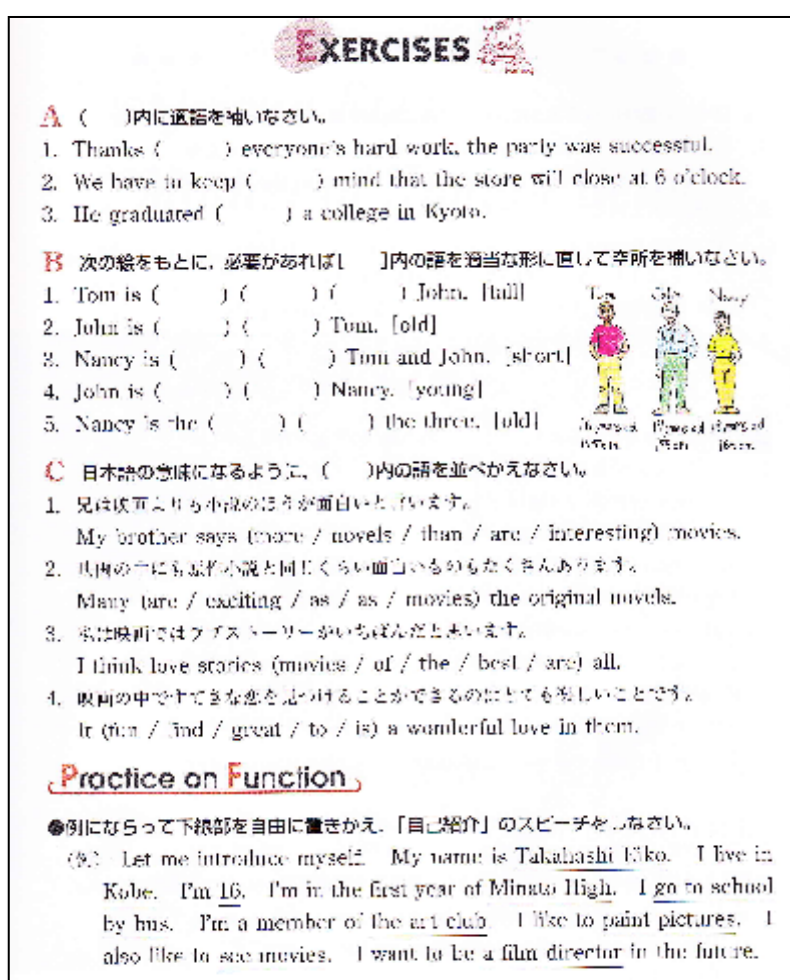 EXERCISES
A (　　)内に適語を補いなさい。
1. Thanks (　　) everyone's hard work, the party was successful.
2. We have to keep (　　) mind that the store will close at 6 o'clock.
3. He graduated (　　) a college in Kyoto.
B 次の絵をもとに，必要があれば[　　]内の語を適当な形に直して空所を補いなさい。
1. Tom is (　　) (　　) (　　) John. [tall]
2. John is (　　) (　　) Tom. [old]
3. Nancy is (　　) (　　) Tom and John. [short]
4. John is (　　) (　　) Nancy. [young]
5. Nancy is the (　　) (　　) the three. [old]
Tom John Nancy
C 日本語の意味になるように，(　　)内の語を並べかえなさい。
1. 兄は映画よりも小説のほうが面白いと言います。
My brother says (more / novels / than / are / interesting) movies.
2. 映画の中にも原作小説と同じくらい面白いものもたくさんあります。
Many (are / exciting / as / as / movies) the original novels.
3. 私は映画ではラブストーリーがいちばんだと思います。
I think love stories (movies / of / the / best / are) all.
4. 映画の中ですてきな恋を見つけることができるのはとても楽しいことです。
It (fun / find / great / to / is) a wonderful love in them.
Practice on Function
●例にならって下線部を自由に置きかえ，「自己紹介」のスピーチをしなさい。
(例) Let me introduce myself. My name is Takahashi Eiko. I live in
Kobe. I'm 16. I'm in the first year of Minato High. I go to school
by bus. I'm a member of the art club. I like to paint pictures. I
also like to see movies. I want to be a film director in the future.